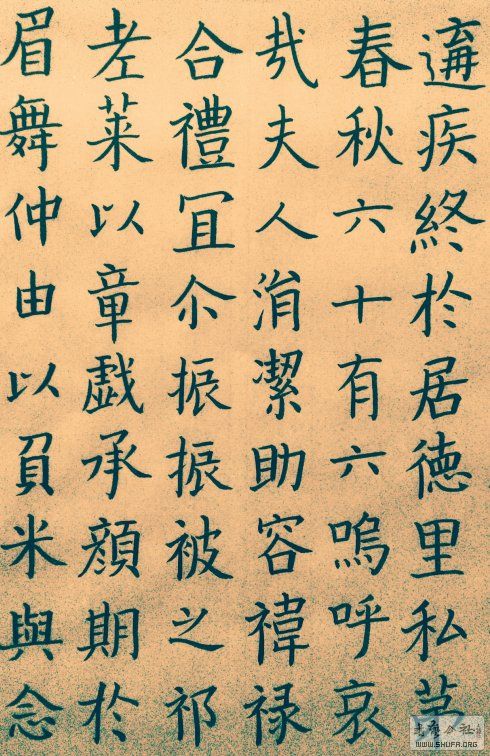 遘疾終於居徳里私苐
春秋六十有六嗚呼哀
哉夫人涓潔助容禕禄
合禮冝尒振振被之祁
老萊以章戲承顔期於
眉舞仲由以負米與念
WWW.SHUFA.ORG